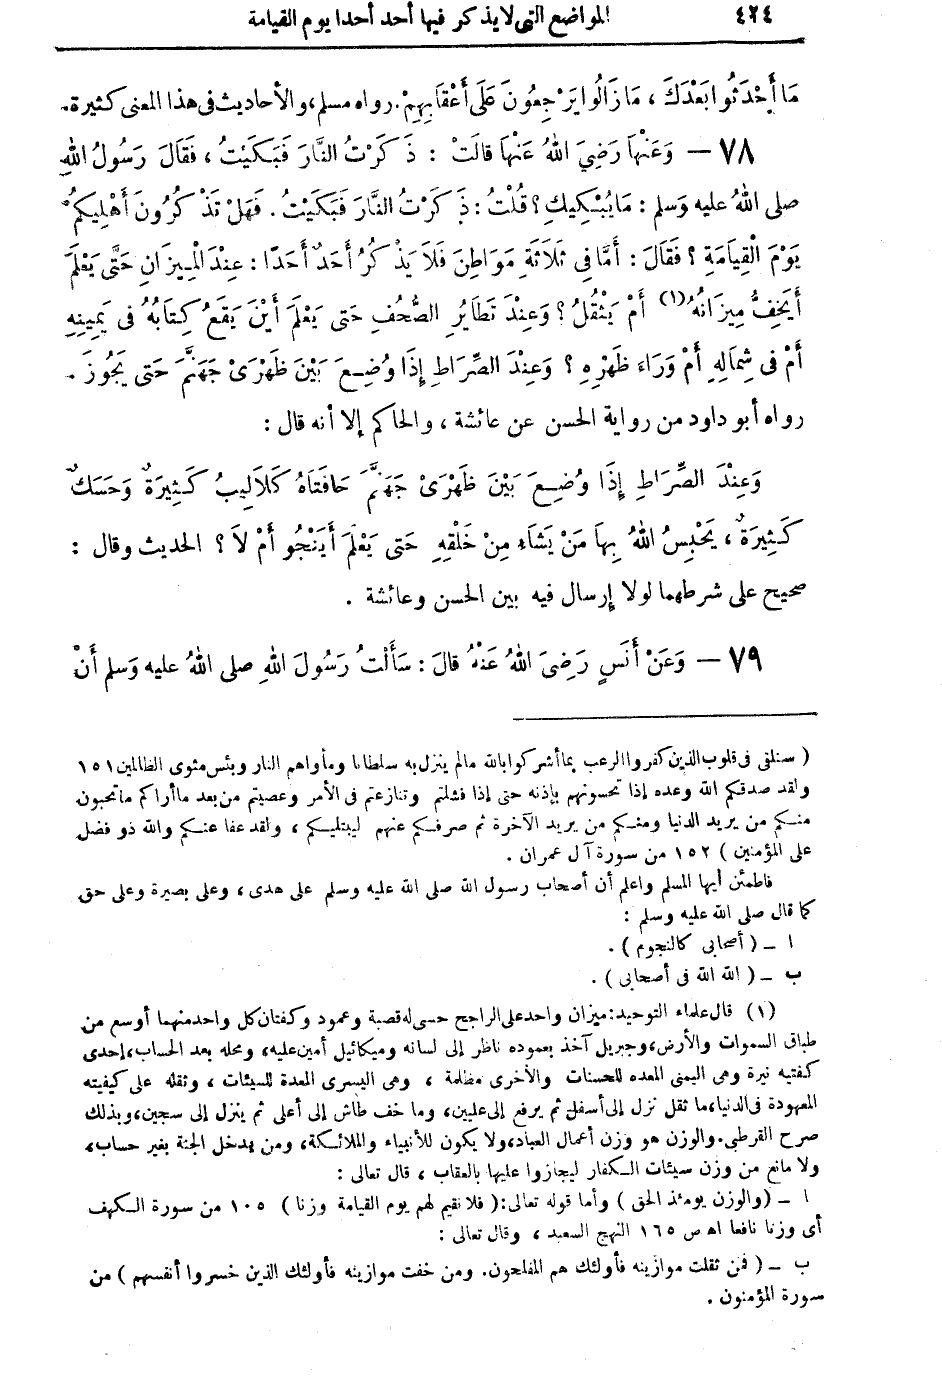 ٤٢٤
المواضع التي لا يذكر فيها أحد أحدا يوم القيامة
مَا أَحْدَثُوا بَعْدَكَ ، مَا زَالُوا يَرْجِعُونَ عَلَى أَعْقَابِهِمْ. رواه مسلم، والأحاديث فى هذا المعنى كثيرة.
٧٨ – وَعَنْهَا رَضِيَ اللهُ عَنْهَا قالَتْ : ذَكَرْتُ النَّارَ فَبَكَيْتُ ، فَقَالَ رَسُولُ اللهِ
صلى اللهُ عليه وَسلم : مَا يُبْكِيكِ ؟ قُلْتُ : ذَكَرْتُ النَّارَ فَبَكَيْتُ . فَهَلْ تَذْكُرُونَ أَهْلِيكُمْ
يَوْمَ الْقِيَامَةِ ؟ فَقَالَ : أَمَّا فِى ثَلَاثَةِ مَوَاطِنَ فَلَا يَذْكُرُ أَحَدٌ أَحَدًا : عِنْدَ الْمِيزَانِ حَتَّى يَعْلَمَ
أَيَخِفُّ مِيزَانُهُ (١) أَمْ يَثْقُلُ ؟ وَعِنْدَ تَطَايُرِ الصُّحُفِ حَتى يَعْلَمَ أَيْنَ يَقَعُ كِتَابُهُ فى يَمِينِهِ
أَمْ فى شِمَالِهِ أَمْ وَرَاءَ ظَهْرِهِ ؟ وَعِنْدَ الصِّرَاطِ إِذَا وُضِعَ بَيْنَ ظَهْرَىْ جَهَنَّمَ حَتى يَجُوزَ .
رواه أبو داود من رواية الحسن عن عائشة ، والحاكم إلا أنه قال :
وَعِنْدَ الصِّرَاطِ إِذَا وُضِعَ بَيْنَ ظَهْرَىْ جَهَنَّمَ حَافَتَاهُ كَلَالِيبُ كَثِيرَةٌ وَحَسَكٌ
كَثِيرَةٌ ، يَحْبِسُ اللهُ بِهَا مَنْ يَشَاءُ مِنْ خَلْقِهِ حَتى يَعْلَمَ أَيَنْجُو أَمْ لَا ؟ الحديث وقال :
صحيح على شرطهما لولا إرسال فيه بين الحسن وعائشة .
٧٩ – وَعَنْ أَنَسٍ رَضِىَ اللهُ عَنْهُ قالَ : سَأَلْتُ رَسُولَ اللهِ صلى اللهُ عليه وَسلم أَنْ
( سنلقى فى قلوب الذين كفروا الرعب بما أشركوا بالله مالم ينزل به سلطانا ومأواهم النار وبئس مثوى الظالمين ١٥١
ولقد صدقكم الله وعده إذا تحسونهم بإذنه حتى إذا فشلتم وتنازعتم فى الأمر وعصيتم من بعد ماأراكم ماتحبون
منكم من يريد الدنيا ومنكم من يريد الآخرة ثم صرفكم عنهم ليبتليكم ، ولقد عفا عنكم والله ذو فضل
على المؤمنين ) ١٥٢ من سورة آل عمران .
فاطمئن أيها المسلم واعلم أن أصحاب رسول الله صلى الله عليه وسلم على هدى ، وعلى بصيرة وعلى حق
كما قال صلى الله عليه وسلم :
ا – ( أصحابى كالنجوم ) .
ب – ( الله الله فى أصحابى ) .
(١) قال علماء التوحيد: ميزان واحد على الراجح حسى له قصبة وعمود وكفتان كل واحد منهما أوسع من
طباق السموات والأرض، وجبريل آخذ بعموده ناظر إلى لسانه وميكائيل أمين عليه، ومحله بعد الحساب، إحدى
كفتيه نيرة وهى اليمنى المعده للحسنات والأخرى مظلمة ، وهى اليسرى المعدة للسيئات ، وثقله على كيفيته
المعهودة فى الدنيا، ما ثقل نزل إلى أسفل ثم يرفع إلى عليين، وما خف طاش إلى أعلى ثم ينزل إلى سجين، وبذلك
صرح القرطبى. والوزن هو وزن أعمال العباد، ولا يكون للأنبياء والملائكة، ومن يدخل الجنة بغير حساب،
ولا مانع من وزن سيئات الكفار ليجازوا عليها بالعقاب ، قال تعالى :
ا – (والوزن يومئذ الحق ) وأما قوله تعالى: ( فلا نقيم لهم يوم القيامة وزنا ) ١٠٥ من سورة الكهف
أى وزنا نافعا اه ص ١٦٥ النهج السعيد ، وقال تعالى :
ب – ( فمن ثقلت موازينه فأولئك هم المفلحون. ومن خفت موازينه فأولئك الذين خسروا أنفسهم ) من
سورة المؤمنون .